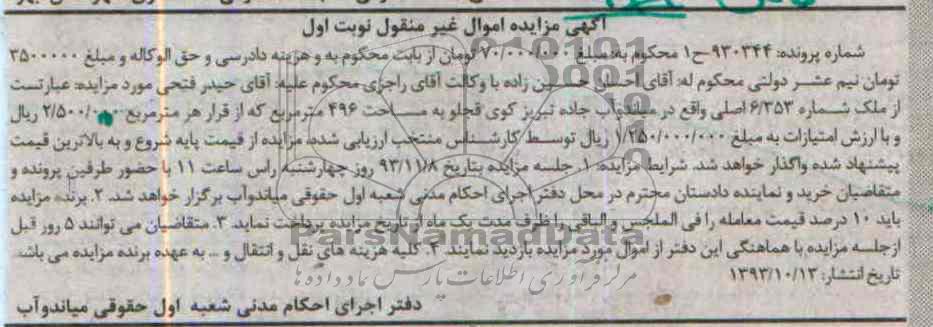 آگهی مزایده اموال غیر منقول نوبت اول
شماره پرونده: ۹۳۰۳۴۴-ح۱ محکوم به: مبلغ ۷۰/۰۰۰/۰۰۰ تومان از بابت محکوم به و هزینه دادرسی و حق الوکاله و مبلغ ۳۵۰۰۰۰۰
تومان نیم عشر دولتی محکوم له: آقای حسین زاده با وکالت آقای راجزی محکوم علیه: آقای حیدر فتحی مورد مزایده: عبارتست
از ملک شماره ۶/۳۵۳ اصلی واقع در میاندوآب جاده تبریز کوی قجلو به مساحت ۴۹۶ مترمربع که از قرار هر مترمربع ۲/۵۰۰/۰۰۰ ریال
و با ارزش امتیازات به مبلغ ۱/۲۵۰/۰۰۰/۰۰۰ ریال توسط کارشناس منتخب ارزیابی شده، مزایده از قیمت پایه شروع و به بالاترین قیمت
پیشنهاد شده واگذار خواهد شد. شرایط مزایده: ۱. جلسه مزایده بتاریخ ۹۳/۱۱/۸ روز چهارشنبه راس ساعت ۱۱ با حضور طرفین پرونده و
متقاضیان خرید و نماینده دادستان محترم در محل دفتر اجرای احکام مدنی شعبه اول حقوقی میاندوآب برگزار خواهد شد. ۲. برنده مزایده
باید ۱۰ درصد قیمت معامله را فی المجلس و الباقی را ظرف مدت یک ماه از تاریخ مزایده پرداخت نماید. ۳. متقاضیان می توانند ۵ روز قبل
از جلسه مزایده با هماهنگی این دفتر از اموال مورد مزایده بازدید نمایند. ۴. کلیه هزینه های نقل و انتقال و ... به عهده برنده مزایده می باشد
تاریخ انتشار: ۱۳۹۳/۱۰/۱۳
دفتر اجرای احکام مدنی شعبه اول حقوقی میاندوآب
ParsNamadData
مرکز فرآوری اطلاعات پارس نماد داده ها